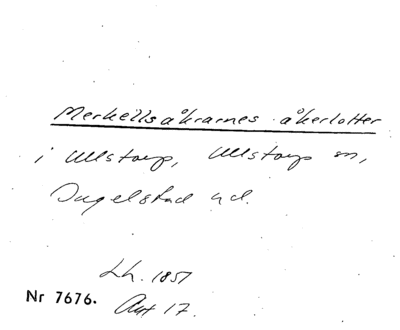 Merkellsåkrarnes åkerlotter
i Ullstorp, Ullstorps sn,
Ingelstad hd.
Lh. 1851
Nr 7676. Akt 17.